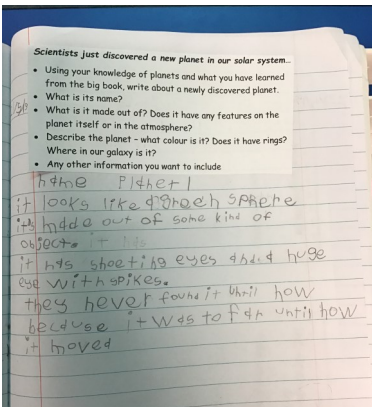 Scientists just discovered a new planet in our solar system...
• Using your knowledge of planets and what you have learned
from the big book, write about a newly discovered planet.
• What is its name?
• What is it made out of? Does it have any features on the
planet itself or in the atmosphere?
• Describe the planet - what colour is it? Does it have rings?
Where in our galaxy is it?
• Any other information you want to include
name Planet 1
it looks like a green sphere
it's made out of some kind of
object. it his
it has shooting eyes and a huge
eye with spikes.
they never found it until now
because it was to far until now
it moved